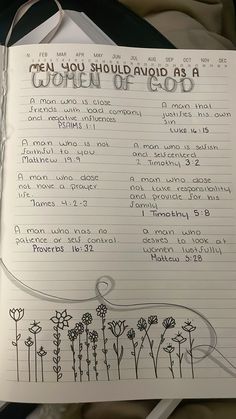 N FEB MAR APR MAY JUN JUL AUG SEP OCT NOV DEC
MEN YOU SHOULD AVOID AS A
WOMEN OF GOD
A man who is close
friends with bad company
and negative influences
PSALMS 1:1
A man that
justifies his own
sin
Luke 16:15
A man who is not
faithful to you
Matthew 19:9
A man who is selfish
and selfcenterd
2 Timothy 3:2
A man who dose
not have a prayer
life
James 4:2-3
A man who dose
not take responsibility
and provide for his
family
1 Timothy 5:8
A man who has no
patience or self control
Proverbs 16:32
a man who
desires to look at
women lustfully
Mattew 5:28